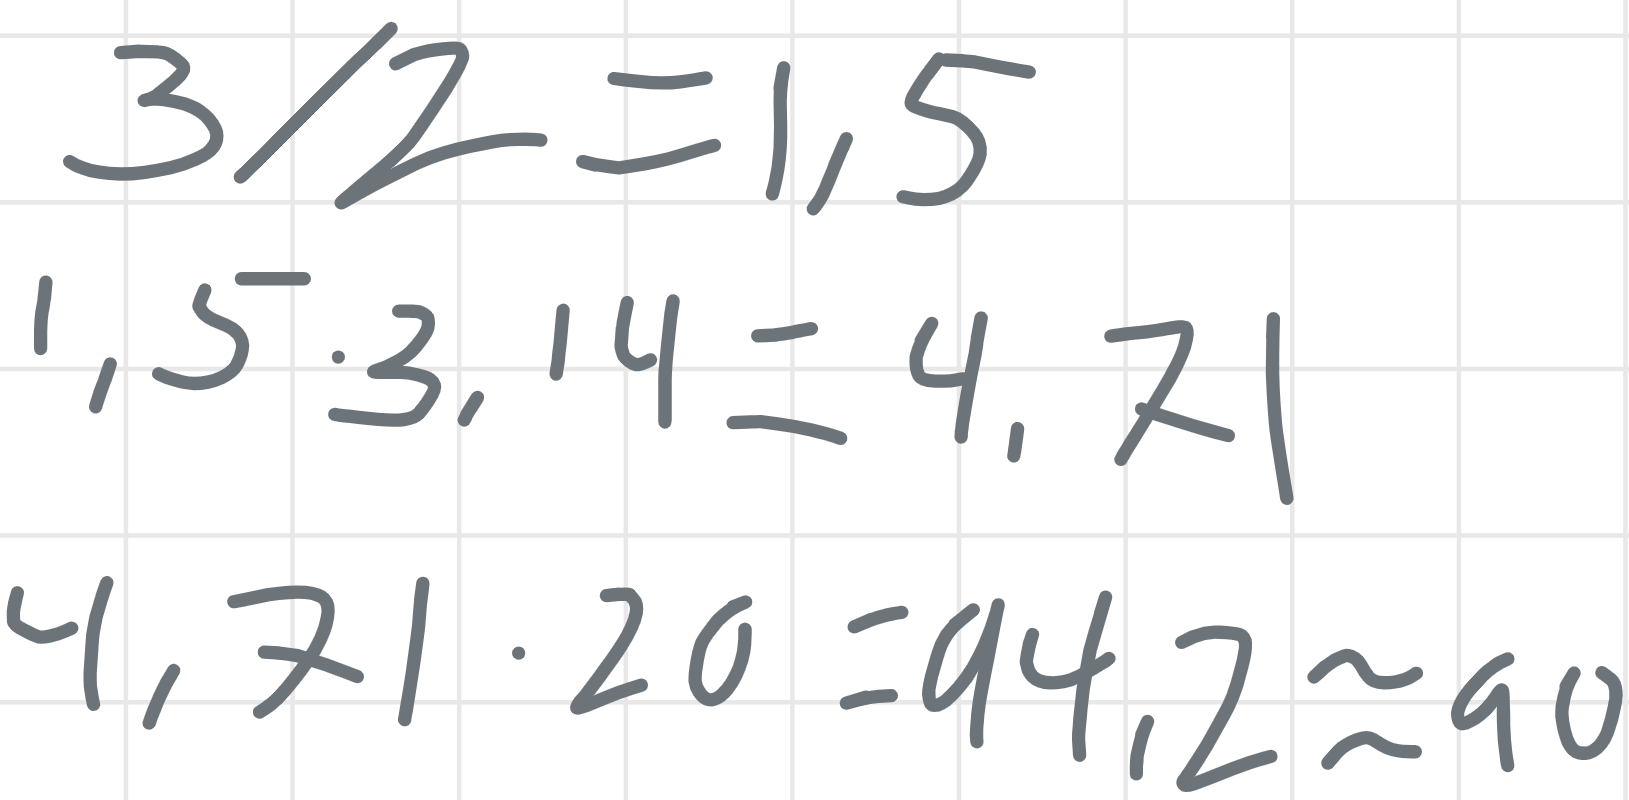 3/2=1,5
1,5·3,14=4,71
4,71·20=94,2≈90